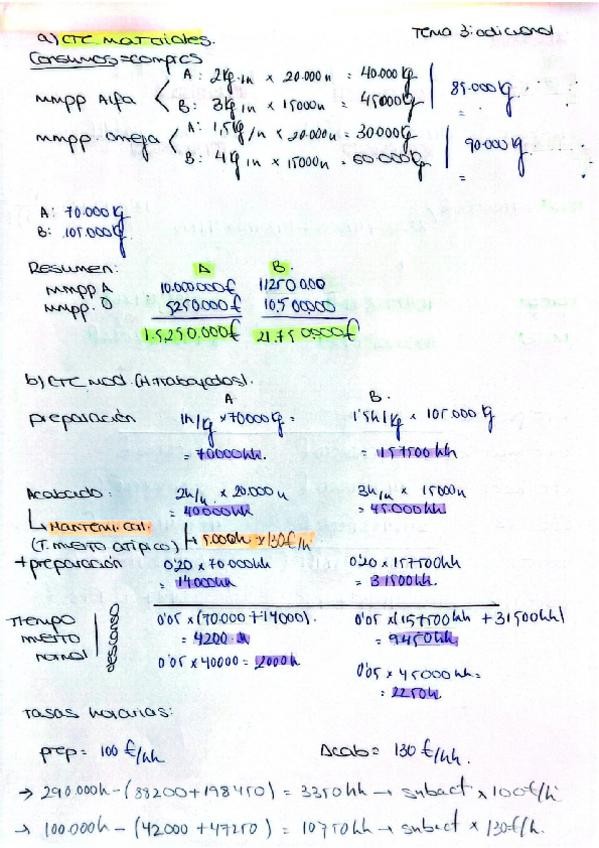 Tema 3: adicional
a) CTC materiales.
Consumos = compras
mmpp Alfa A: 2kg/n × 20.000n = 40.000kg 85.000kg
B: 3kg/n × 15000n = 45000kg =
mmpp. omega A: 1,5kg/n × 20.000n = 30000kg 90.000kg
B: 4kg/n × 15000n = 60.000kg =
A: 70.000kg
B: 105.000kg
Resumen: A B.
mmpp A 10.000.000€ 11250.000
mmpp. O 5250000€ 10,500000
15,250,000€ 21.750000€
b) CTC mod. (H. trabajadas).
A B.
preparación 1h/kg × 70000kg = 1'5h/kg × 105.000kg
= 70000hh. = 157500hh
Acabado: 2h/n × 20.000n 3h/n × 15000n
= 40000hh = 45.000hh
↳ Mantemi. cal.
(T. muerto atípico) ↳ 5.000h × 130€/h
+preparación 0'20 × 70.000hh 0'20 × 157500hh
= 14000hh = 31500hh.
Tiempo muerto normal descanso 0'05 × (70.000 + 14000). 0'05 × (157500hh + 31500hh)
= 4200 h = 9450hh
0'05 × 40000 = 2000h 0'05 × 45000hh =
= 2250h.
Tasas horarias:
prep = 100 €/hh Acab = 130 €/hh.
→ 290.000h - (88200 + 198450) = 3350hh → subact × 100€/h
→ 100.000h - (42000 + 47250) = 10750hh → subact × 130€/h.